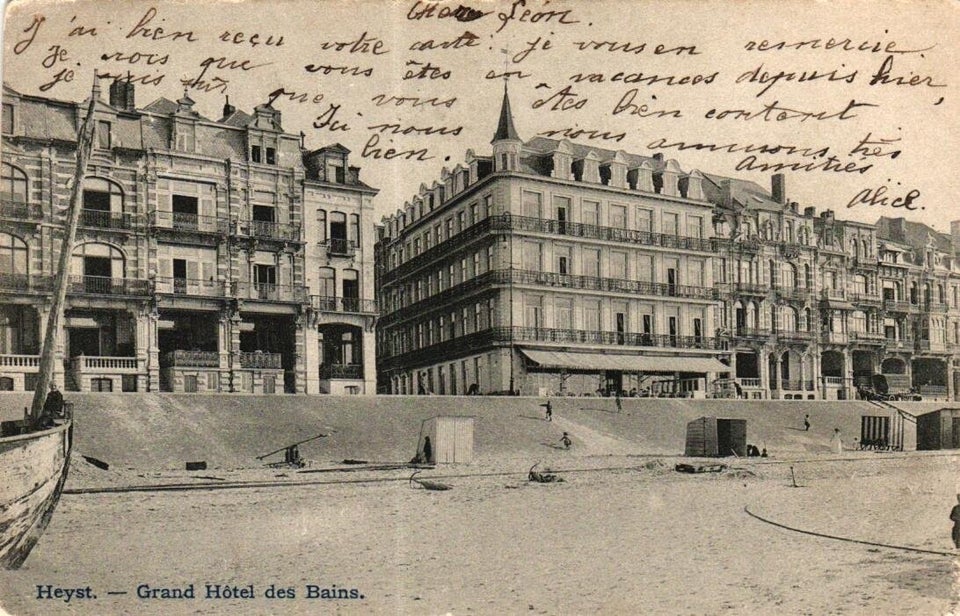 Léon.
J'ai bien reçu votre carte. je vous en remercie
Je vois que vous êtes en vacances depuis hier,
je suis sûr que vous êtes bien content
Ici nous nous amusons très
bien.
Amitiés
Alice.
Heyst. — Grand Hôtel des Bains.